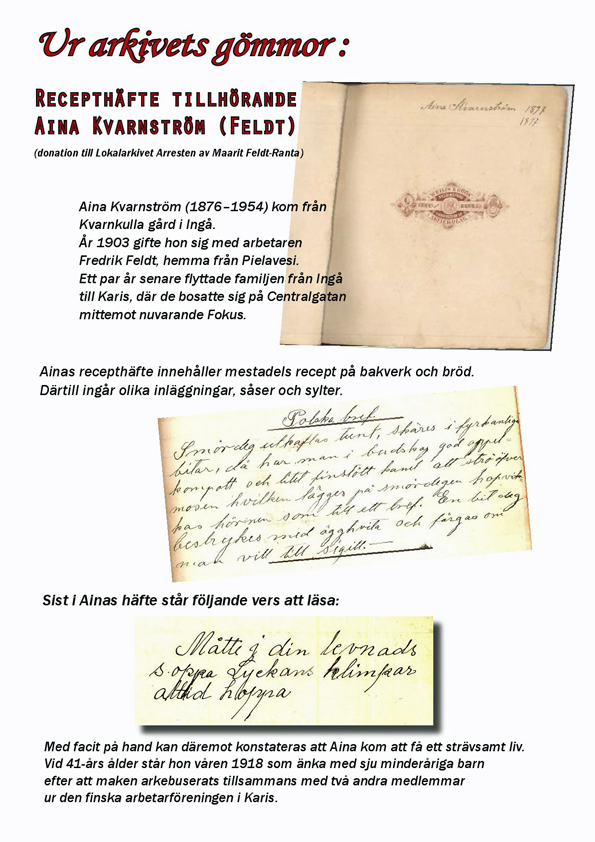 Ur arkivets gömmor :
RECEPTHÄFTE TILLHÖRANDE
AINA KVARNSTRÖM (FELDT)
(donation till Lokalarkivet Arresten av Maarit Feldt-Ranta)
Aina Kvarnström 1877
1897
Aina Kvarnström (1876–1954) kom från
Kvarnkulla gård i Ingå.
År 1903 gifte hon sig med arbetaren
Fredrik Feldt, hemma från Pielavesi.
Ett par år senare flyttade familjen från Ingå
till Karis, där de bosatte sig på Centralgatan
mittemot nuvarande Fokus.
Ainas recepthäfte innehåller mestadels recept på bakverk och bröd.
Därtill ingår olika inläggningar, såser och sylter.
Polska bref.
Smördeg utkaflas tunt, skäres i fyrkantiga
bitar, då har man i budskap god äppel-
kompott och litet finstött kanel att strö öfver
mosen hvilken lägges på smördegen hopvik-
kas hörnen som till ett bref. En bit deg
bestrykes med ägghvita och färgas om
man vill till sigill.
Sist i Ainas häfte står följande vers att läsa:
Måtte i din levnads
soppa Lyckans klimpar
alltid hoppa
Med facit på hand kan däremot konstateras att Aina kom att få ett strävsamt liv.
Vid 41-års ålder står hon våren 1918 som änka med sju minderåriga barn
efter att maken arkebuserats tillsammans med två andra medlemmar
ur den finska arbetarföreningen i Karis.